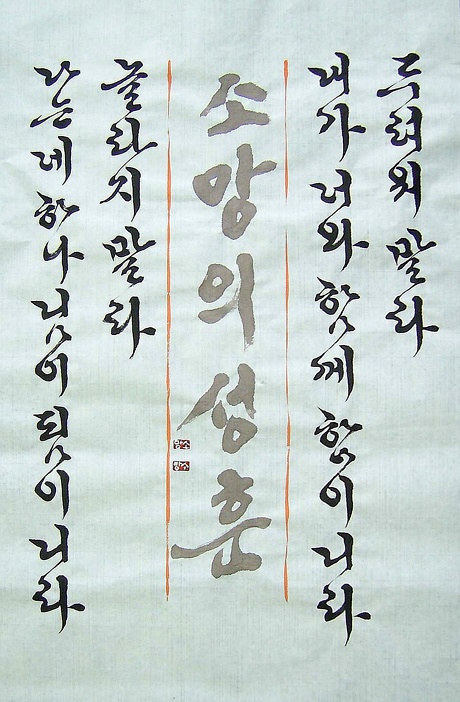 두려워 말라
내가 너와 함께 함이니라
소망의 성훈
놀라지 말라
나는 네 하나님이 됨이니라